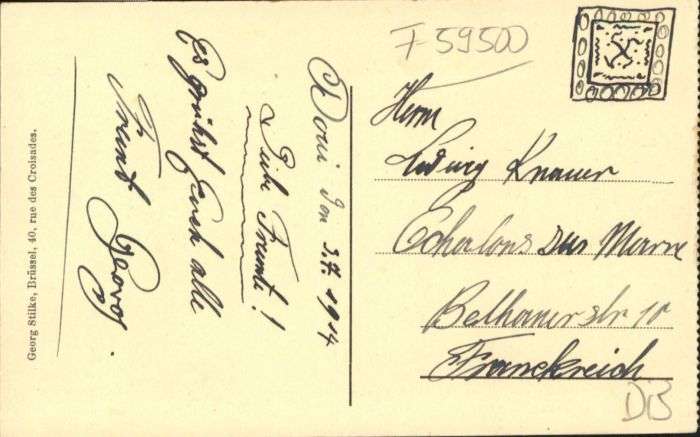 F 59500
Herrn
Ludwig Knauer
Echalons sur Marne
Bethauerstr 10
Franckreich
DB
den 3.7. 1914
Liebe Freunde!
Es grüsst Euch alle
Freund Georg.
Georg Stilke, Brüssel, 40, rue des Croisades.